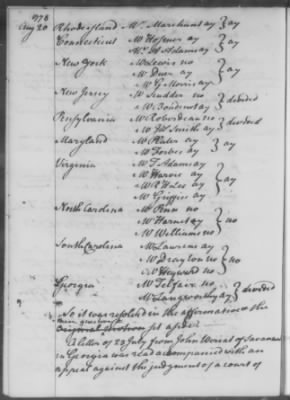 1778
Aug 20
Rhode island Mr. Marchant ay } ay
Connecticut Mr Hosmer ay } ay
Mr. A Adams ay
New York Mr Lewis no
Mr Duer ay } ay
Mr G Morris ay
New Jersey Mr Scudder no } divided
Mr Boudinot ay
Pensylvania Mr Roberdeau no } divided
Mr JB Smith ay
Maryland Mr ay } ay
Mr Forbes ay
Virginia Mr T Adams ay
Mr Harvie ay } ay
Mr ay
Mr Griffin ay
North Carolina Mr Penn no
Mr Harnet ay } no
Mr Williams no
South Carolina Mr Laurens ay
Mr Drayton no } no
Mr Heyward no
Georgia Mr Telfair no } divided
Mr Langworthy ay
So it was resolved in the affirmative & the
set aside
A letter of 23 July from John Wereat of Savannah
in Georgia was read accompanied with an
appeal against the judgement of a court of